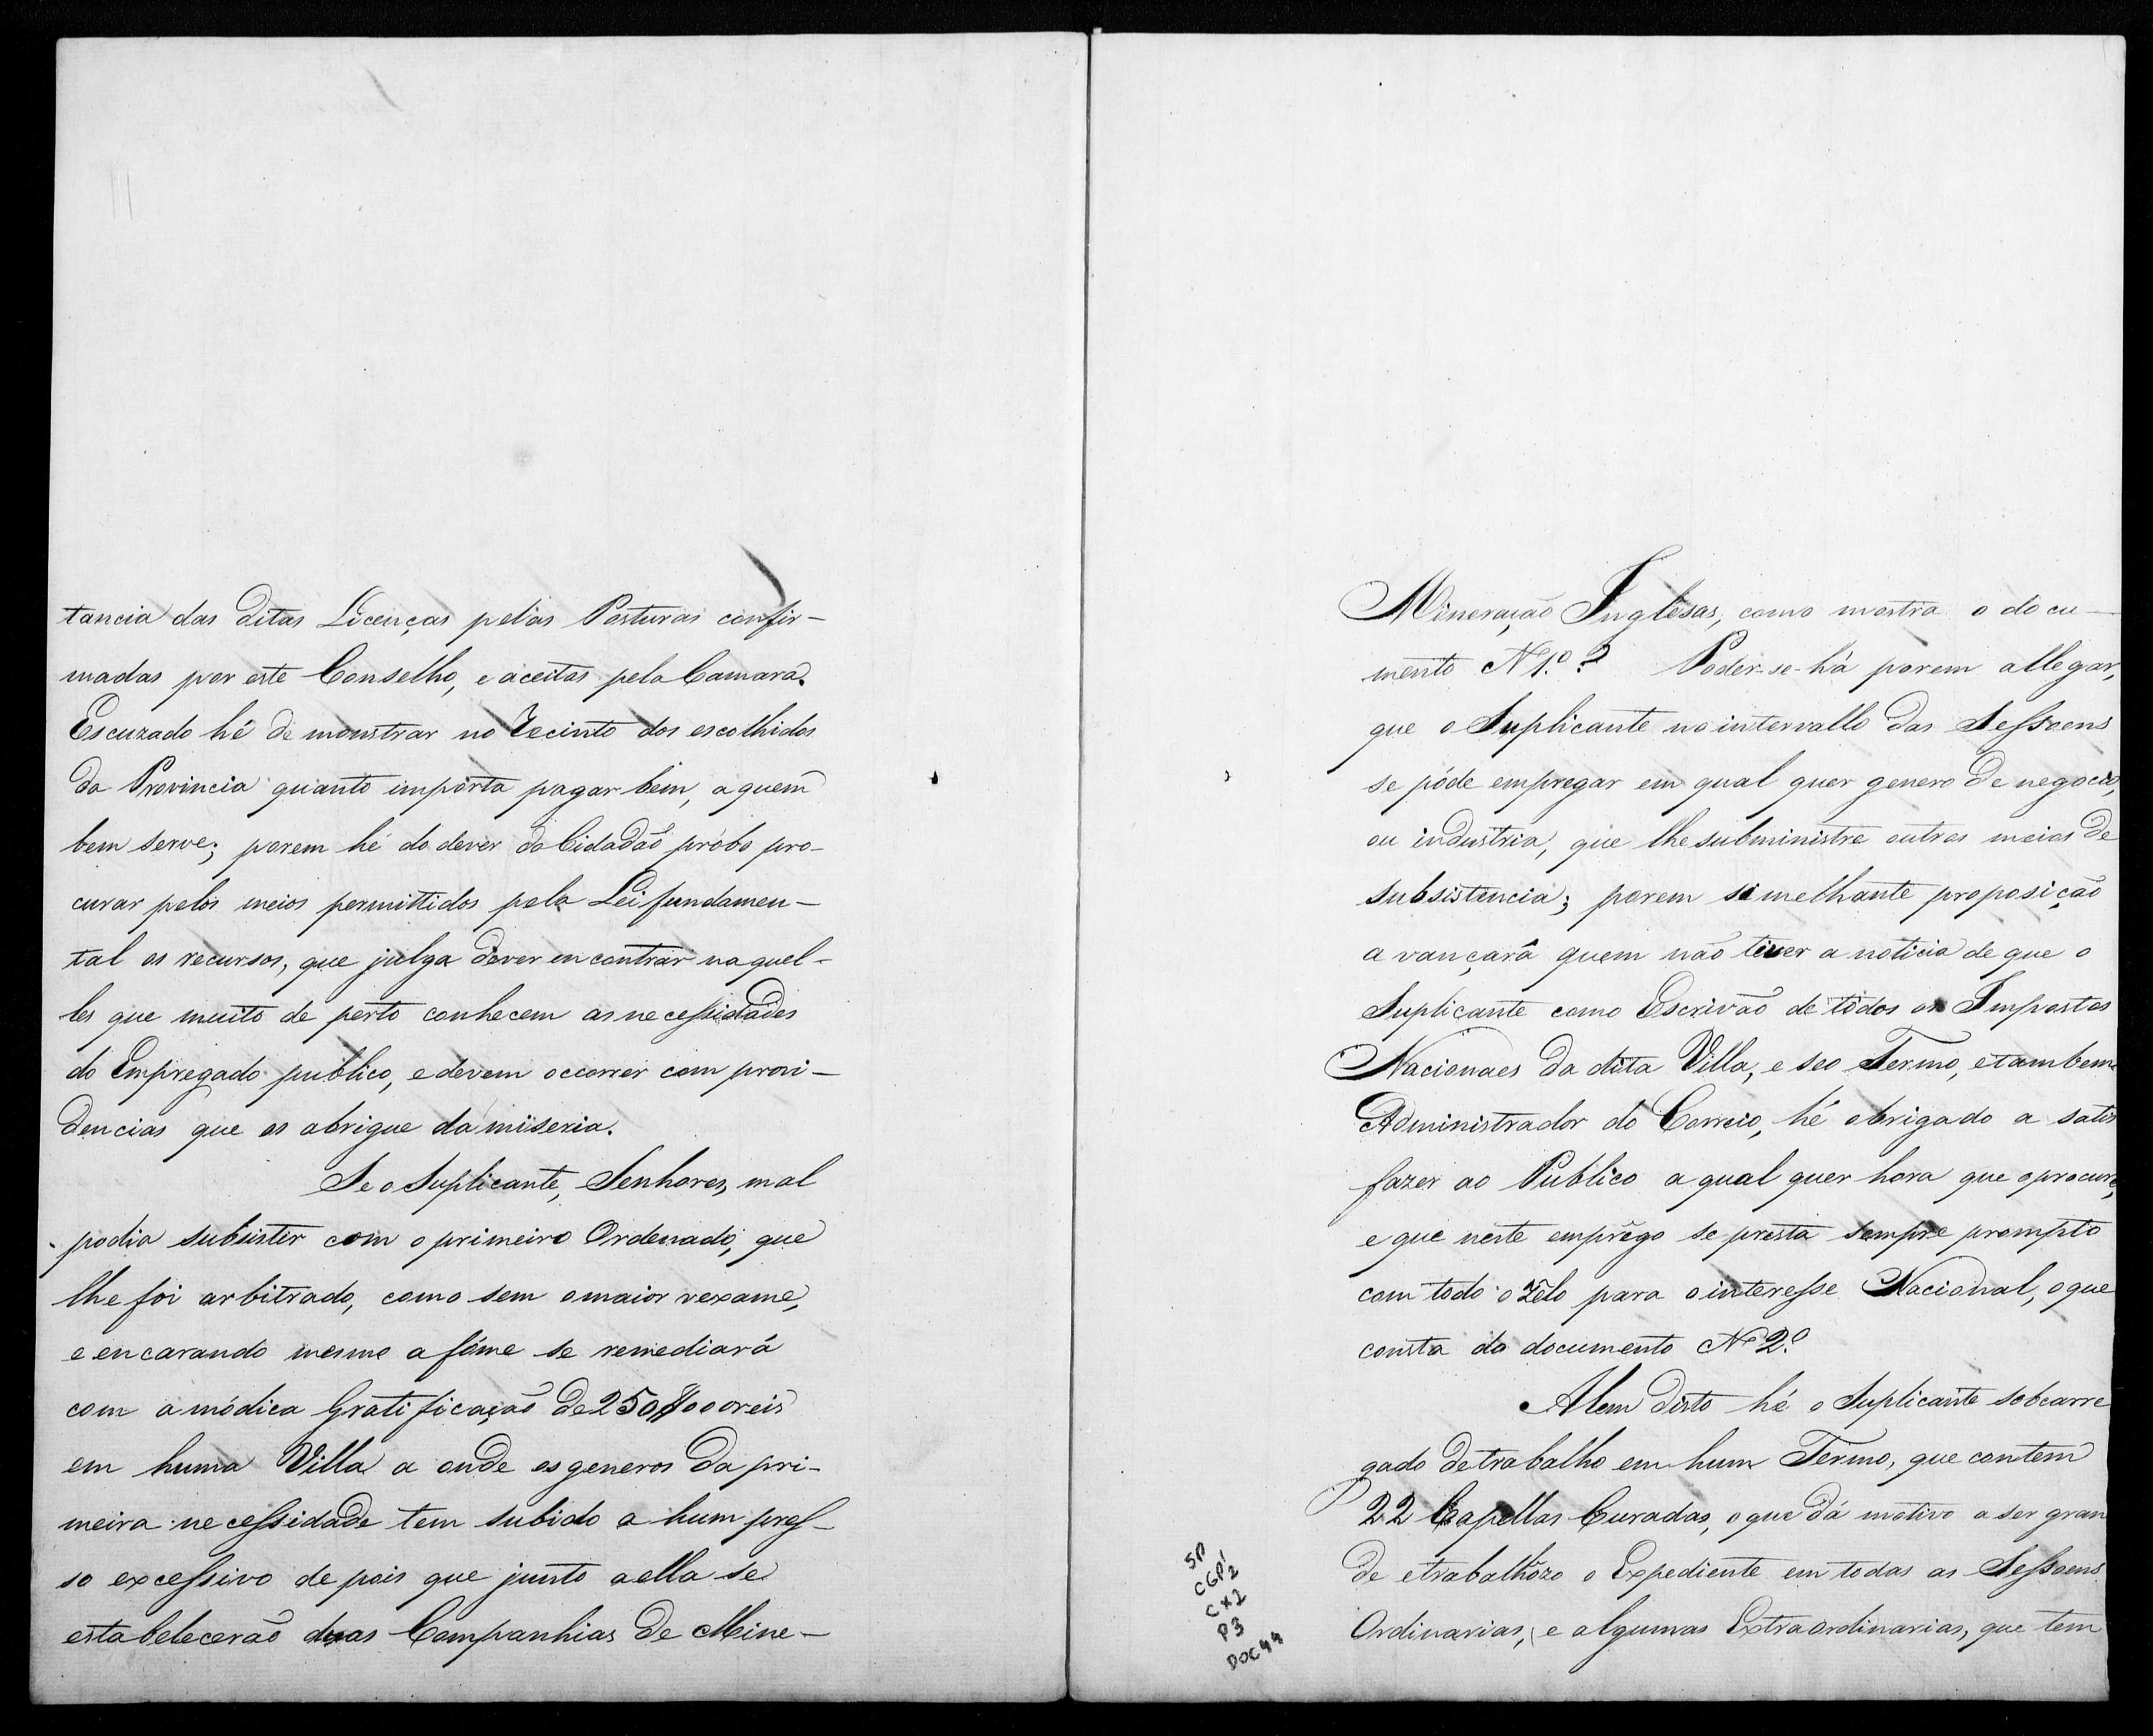 tancia das ditas Licenças pelas Posturas confir-
madas por este Conselho, e aceitas pela Camara.
Escuzado hé de monstrar no Recinto dos escolhidos
da Provincia quanto importa pagar bem, a quem
bem serve; porem hé do dever do Cidadão probo pro-
curar pelos meios permittidos pela Lei fundamen-
tal os recursos, que julga dever encontrar naquel-
les que muito de perto conhecem as necessidades
do Empregado publico, e devem occorrer com provi-
dencias que os abrigue da miseria.
Se o Suplicante, Senhores, mal
podia subsister com o primeiro Ordenado, que
lhe foi arbitrado, como sem o maior vexame,
e encarando mesmo a fóme se remediará
com a módica Gratificação de 250$000 reis
em huma Villa a onde os generos da pri-
meira necessidade tem subido a hum pres-
so excessivo de pois que junto a ella se
estabelecerão duas Companhias de Mine-
Mineração Inglesas, como mostra o docu-
mento N 1.º? Poder-se-há porem allegar,
que o Suplicante no intervallo das Sessoens
se póde empregar em qual quer genero de negocio,
ou industria, que lhe subministre outros meios de
subsistencia; porem similhante proposição
avançará quem não tiver a noticia de que o
Suplicante como Escrivão de todos os Impostos
Nacionaes da dita Villa, e seo Termo, e tambem
Administrador do Correio, hé obrigado a satis
fazer ao Publico a qual quer hora que o procure,
e que neste emprego se presta sempre prompto
com todo o Zelo para o interesse Nacional, o que
consta do documento N 2.º
Alem disto hé o Suplicante sobcarre
gado de trabalho em hum Termo, que contem
22 Capellas Curadas, o que dá motivo a ser gran
de e trabalhozo o Expediente em todas as Sessoens
Ordinarias, e algumas Extraordinarias, que tem
SP
CGP1
CX2
P3
DOC44